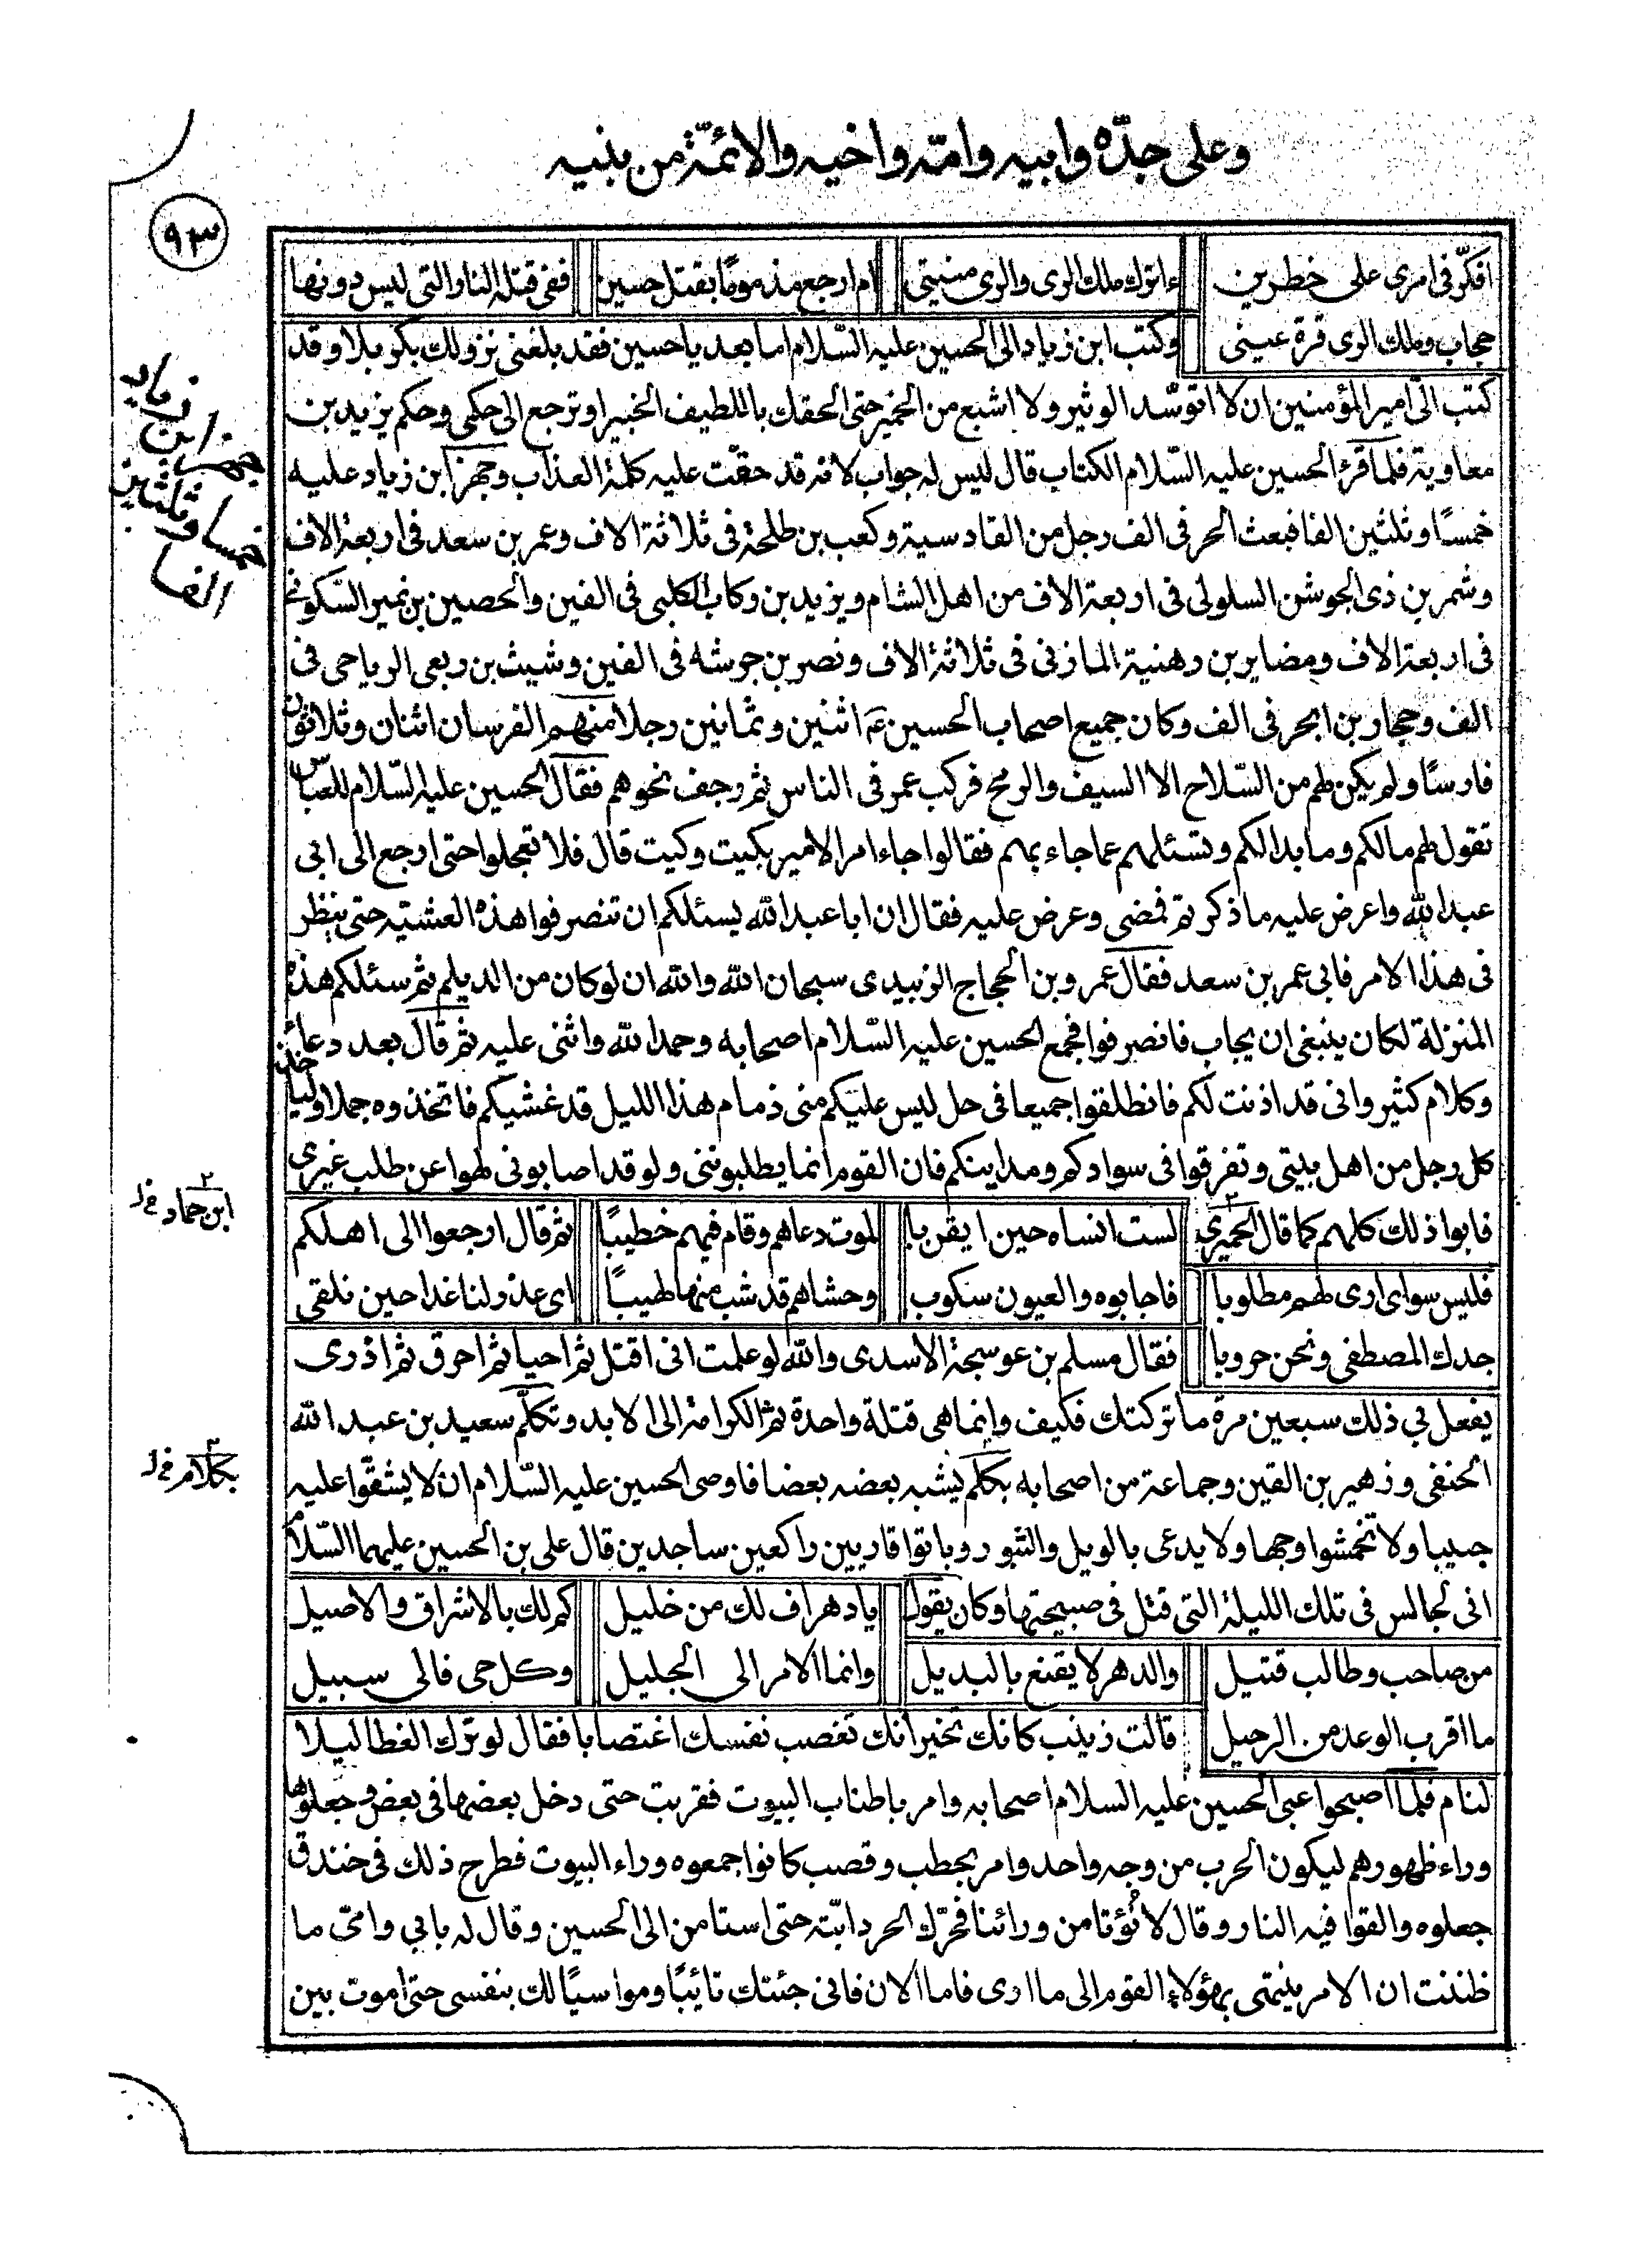 وعلى جدّه وابيه وامّه واخيه والائمّة من بنيه
٩٣
افكّر فى امرى على خطرين ءاترك ملك الرى والرى منيتي ام ارجع مذموماً بقتل حسين ففى قتله النار التى ليس دونها
حجاب وملك الرى قرة عينى وكتب ابن زياد الى الحسين عليه السّلام اما بعد يا حسين فقد بلغنى نزولك بكربلا وقد
كتب الىّ امير المؤمنين ان لا اتوسّد الوثير ولا اشبع من الخمير حتى الحقك باللطيف الخبير او ترجع الى حكمى وحكم يزيد بن
معاوية فلما قرئ الحسين عليه السّلام الكتاب قال ليس له جواب لانه قد حقّت عليه كلمة العذاب وجهز ابن زياد عليه
خمسًا وثلثين الفا فبعث الحر فى الف رجل من القادسية وكعب بن طلحة فى ثلاثة الاف وعمر بن سعد فى اربعة الاف
وشمر بن ذى الجوشن السلولى فى اربعة الاف من اهل الشام ويزيد بن ركاب الكلبى فى الفين والحصين بن نمير السّكونى
فى اربعة الاف ومضاير بن رهنية المازنى فى ثلاثة الاف ونصر بن حرشه فى الفين وشبث بن ربعى الرياحى فى
الف وحجار بن ابحر فى الف وكان جميع اصحاب الحسين عم اثنين وثمانين رجلا منهم الفرسان اثنان وثلاثون
فارسًا ولم يكن لهم من السّلاح الا السيف والرمح فركب عمر فى الناس ثم زحف نحوهم فقال الحسين عليه السّلام للعبّاس
تقول لهم مالكم وما بدالكم وتسئلهم عما جاء بهم فقالوا جاء امر الامير بكيت وكيت قال فلا تعجلوا حتى ارجع الى ابى
عبد الله واعرض عليه ما ذكرتم فمضى وعرض عليه فقال ان ابا عبد الله يسئلكم ان تنصرفوا هذه العشيّه حتى ينظر
فى هذا الامر فابى عمر بن سعد فقال عمرو بن الحجاج الزبيدى سبحان الله والله ان لو كان من الديلم ثم سئلكم هذه
المنزلة لكان ينبغى ان يجاب فانصرفوا فجمع الحسين عليه السّلام اصحابه وحمد الله واثنى عليه ثم قال بعد دعاء
وكلام كثير وانى قد اذنت لكم فانطلقوا جميعا فى حل ليس عليكم منى ذمام هذا الليل قد غشيكم فاتخذوه جملا ولياخذ
كل رجل من اهل بيتى وتفرقوا فى سوادكم ومداينكم فان القوم انما يطلبوننى ولو قد اصابونى لهوا عن طلب غيرى
فابوا ذلك كلهم كما قال الحميرى لست انساه حين ايقن با لموت دعاهم وقام فيهم خطيبًا ثم قال ارجعوا الى اهلكم
فليس سواى ارى لهم مطلوبا فاجابوه والعيون سكوب وحشاهم قد شب منها لهيبًا اى عذر لنا غدا حين نلقى
جدك المصطفى ونحن حروبا فقال مسلم بن عوسجة الاسدى والله لو علمت انى اقتل ثم احيا ثم احرق ثم اذرى
يفعل بي ذلك سبعين مرة ما تركتك فكيف وانما هى قتلة واحدة ثم الكرامة الى الابد وتكلّم سعيد بن عبد الله
الحنفى وزهير بن القين وجماعة من اصحابه بكلم يشبه بعضه بعضا فاوصى الحسين عليه السّلام ان لا يشقّوا عليه
جيبا ولا تخمشوا وجها ولا يدعى بالويل والثبور وباتوا قاريين راكعين ساجدين قال على بن الحسين عليهما السّلام
انى لجالس فى تلك الليلة التى قتل فى صبيحتها وكان يقول يا دهر اف لك من خليل كم لك بالاشراق والاصيل
من صاحب وطالب قتيل والدهر لا يقنع بالبديل وانما الامر الى الجليل وكل حى فالى سبيل
ما اقرب الوعد من الرحيل قالت زينب كانك تخبر انك تغصب نفسك اغتصابا فقال لو ترك القطا ليلا
لنام فلما اصبحوا عبى الحسين عليه السلام اصحابه وامر باطناب البيوت فقربت حتى دخل بعضها فى بعض وجعلوها
وراء ظهورهم ليكون الحرب من وجه واحد وامر بحطب وقصب كانوا جمعوه وراء البيوت فطرح ذلك فى خندق
جعلوه والقوا فيه النار وقال لا نُؤتا من ورائنا فحرّك الحر دابّته حتى استامن الى الحسين وقال له بابي وامى ما
ظننت ان الامر ينتهى بهؤلاء القوم الى ما ارى فاما الان فانى جئتك تائبًا ومواسيًا لك بنفسى حتى اموت بين
جهز ابن زياد
خمسا وثلثين
الفا
ابن حماد خ ل
بكلام خ ل